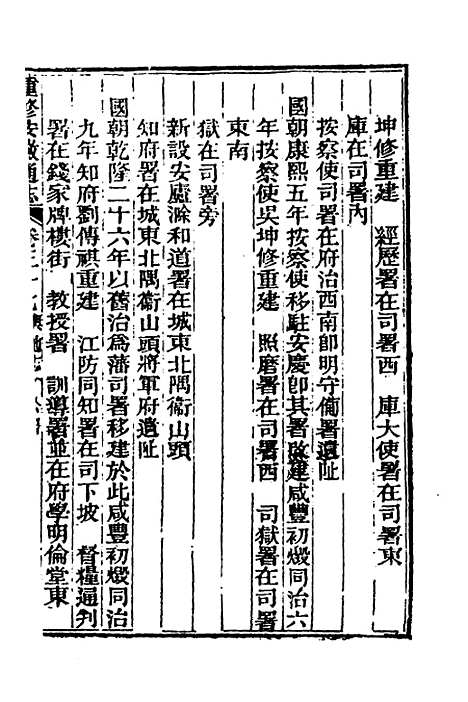 坤修重建　經歷署在司署西　庫大使署在司署東
庫在司署內
按察使司署在府治西南卽明守備署遺址
國朝康熙五年按察使移駐安慶卽其署改建咸豐初燬同治六
年按察使吳坤修重建　照磨署在司署西　司獄署在司署
東南
獄在司署旁
新設安廬滁和道署在城東北隅衞山頭
知府署在城東北隅衞山頭將軍府遺址
國朝乾隆二十六年以舊治爲藩司署移建於此咸豐初燬同治
九年知府劉傳祺重建　江防同知署在司下坡　督糧通判
署在錢家牌樓街　教授署　訓導署並在府學明倫堂東
重修安徽通志